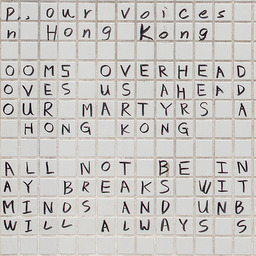 p,, our voices
n Hong Kong
OOMS OVERHEAD
OVES US AHEAD
OUR MARTYRS A
HONG KONG
ALL NOT BE IN
AY BREAKS WIT
MINDS AND UNB
WILL ALWAYS S